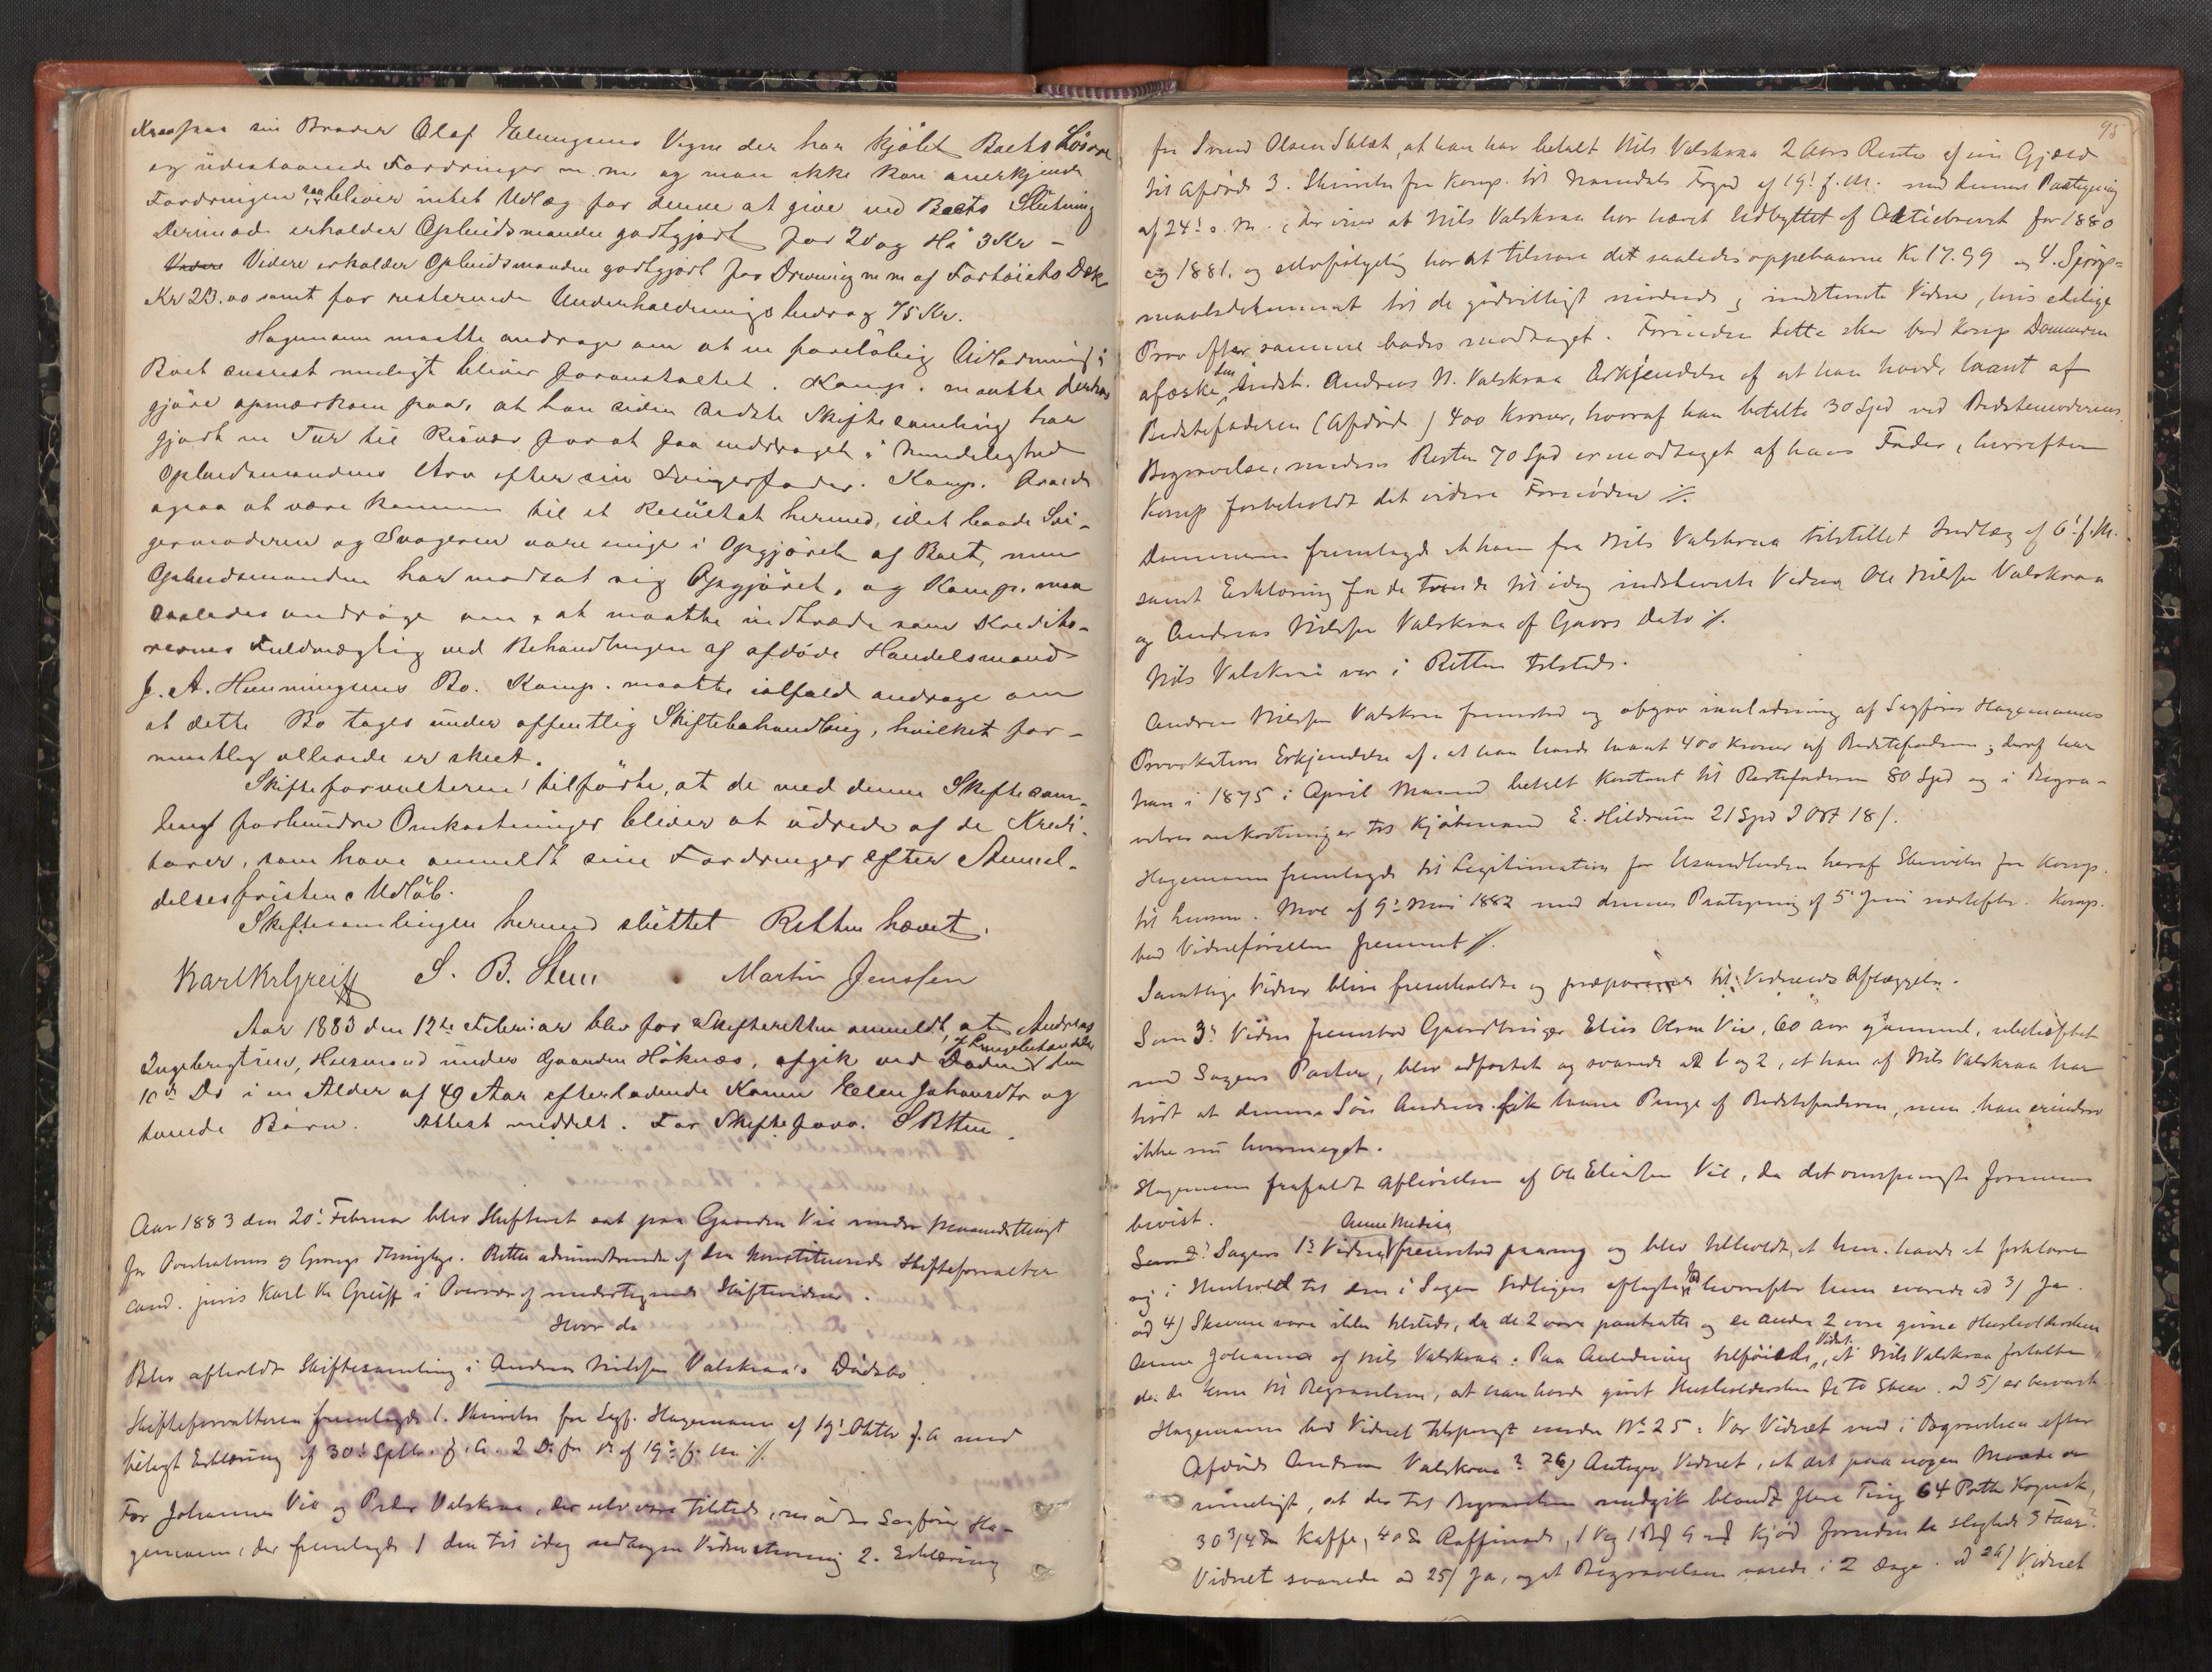 paa sin Broder Olaf Elingsens Vegne der har kjøbt Boets Løsøre
og udestaaende Fordringer m. m. og man ikke kan anerkjende
Fordringen saa bliver intet Udlæg for denne at give ved Boets Slutning
Derimod erholder Opbudsmanden godtgjort for 2 Dag Hø 3 Kr –
Videre Videre erholder Opbudsmanden godtgjort for m m af Fartøiets Dæk
Kr 23.00 samt for resterende Underholdnings bidrag 75 Kr.
Hagemann maatte andrage om at en foreløbig Udlodning i
Boet snarest muligt bliver foranstaltet. Komp. maatte derhos
gjøre opmærksom paa, at han siden sidste Skiftesamling har
gjort en Tur til Risvær for at faa inddraget i Mindelighed
Opbudsmandens Arv efter sin Svigerfader. Komp. troede
ogsaa at være kommen til et Resultat hermed, idet baade Svi-
germoderen og Svogeren vare enige i Opgjøret af Boet, men
Opbudsmanden har modsat sig Opgjøret, og Komp. maa
saaledes andrage om, at maatte indtræde som Kredito-
rernes Fuldmægtig ved Behandlingen af afdøde Handelsmand
J. A. Henningsens Bo. Komp. maatte ialfald andrage om
at dette Bo tages under offentlig Skiftebehandling, hvilket for-
mentlig allerede er skeet.
Skifteforvalteren tilførte, at de med denne Skiftesam-
ling forbundne Omkostninger bliver at udrede af de Kredi-
torer, som have anmeldt sine Fordringer efter Anmel-
delsesfristens Udløb.
Skiftesamlingen hermed sluttet Retten hævet.
Karl Kr Greiff S. B. Sten Martin Jenssen
Aar 1883 den 12te Februar blev for Skifteretten anmeldt, at Andreas
Ingebrigtsen, Husmand under Gaarden Høknes, afgik ved Døden den
10de Ds i en Alder af 49 Aar efterladende Konen Ellen Johansdtr og
tvende Børn. Attest meddelt. For Skifteforv. SBSten.
Aar 1883 den 20de Februar blev Skifteret sat paa Gaarden Vie under
for Overhallens og Grongs Thinglag. Retten administreredes af den konstituerede Skifteforvalter
cand. juris Karl Kr Greiff i Overvær af undertegnede Skiftevidner.
Hvor da
Blev afholdt Skiftesamling i Andreas Nilssen Valskraa's Dødsbo
Skifteforvalteren fremlagde 1. Skrivelse fra Sagf. Hagemann af 19de Oktbr f. A. med
bilagt Erklæring af 30te Septbr. f. A. 2. Do fra Do af 19de f. M. ./.
For Johannes Vie og Peder Valskraa, der selv vare tilstede, mødte Sagfører Ha-
gemann, der fremlagde 1 den til idag udtagne Vidnestevning 2. Erklæring
95
fra Svend Olsen at han har betalt Nils Valskraa 2 Aars Rente af sin Gjæld
til Afdøde 3. Skrivelse fra Komp. til Namdals Foged af 19de f. M. med dennes Paategning
af 24de s. M., der viser at Nils Valskraa har hævet Udbyttet af Aktiebrevet for 1880
og 1881, og selvfølgelig har at tilsvare det saaledes oppebaarne Kr 17.99 og 4. Spørgs-
maalsdokument til de godvilligt mødende og indstevnte Vidner, hvis edelige
Prov efter samme bades modtaget. Forinden dette sker bad Komp Dommeren
afæske den Indst. Andreas N. Valskraa Erkjendelse af at han havde laant af
Bedstefaderen (Afdøde) 400 Kroner, hvoraf han betalte 30 Spd ved Bedstemoderens
Begravelse, medens Resten 70 Spd er modtaget af hans Fader, hvorefter
Komp forbeholdt det videre Fornødne ./.
Dommeren fremlagde et ham fra Nils Valskraa tilstillet Indlæg af 6te f. M.
samt Erklæring fra de tvende til idag indstevnte Vidner Ole Nilssen Valskraa
og Andreas Nilssen Valskraa af Gaars Dato ./.
Nils Valskraa var i Retten tilstede.
Andreas Nilssen Valskraa fremstod og afgav i anledning af Sagfører Hagemanns
Provokation Erkjendelse af, at han havde laant 400 Kroner af Bedstefaderen; deraf har
han i 1875 i April Maaned betalt kontant til Bedstefaderen 80 Spd og i Begra-
velsesomkostninger til Kjøbmand E. Hildrum 21 Spd 2 Ort 18 s.
Hagemann fremlagde til Legitimation for Usandheden heraf Skrivelse fra Komp.
til af 9de Mai 1882 med dennes Paategning af 5te Juni næstefter. Komp.
bad Vidneførselen fremmet ./.
Samtlige Vidner bleve fremkaldte og præparerede til Vidneeds Aflæggelse.
Som 3de Vidne fremstod Gaardbruger Elias Olsen Vie, 60 Aar gammel, ubeslægtet
med Sagens Parter, blev edfæstet og svarede ad 1 og 2, at han af Nils Valskraa har
hørt at dennes Søn Andreas fik laane Penge af Bedstefaderen, men han erindrer
ikke nu hvormeget.
Hagemann frafaldt Afhørelsen af Ole Eliassen Vie, da det omspurgte formenes
bevist.
Som 2 Sagens 1ste Vidne Anne Medina fremstod paany og blev tilholdt, at hun havde at forklare
sig i Henhold til den i Sagen tidligere aflagte Ed hvorefter hun svarede ad 3) Ja.
ad 4) Skeerne vare ikke tilstede, da de 2 vare pantsatte og de andre 2 vare givne Husholdersken
Anne Johanna af Nils Valskraa. Paa Anledning tilføiede Vidnet, at Nils Valskraa fortalte,
da de kom til Begravelsen, at han havde givet Husholdersken de to Skeer. ad 5) er besvaret.
Hagemann bad Vidnet tilspurgt under No 25: Var Vidnet med i Begravelsen efter
Afdøde Andreas Valskraa? 26) Antager Vidnet, at det paa nogen Maade er
rimeligt, at der til Begravelsen medgik blandt flere Ting 64 Potter Kognak,
30 3/4 ℔ Kaffe, 40 ℔ Raffinade, 1 Vog Kjød foruden de slagtede 3 Faar?
Vidnet svarede ad 25) Ja, og at Begravelsen varede i 2 Dage. ad 26) Vidnet